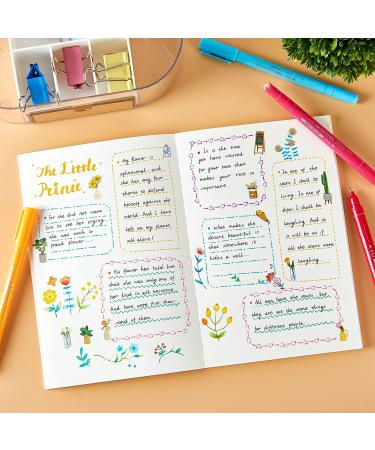 The Little
Prince
My flower is
ephemeral and
she has only four
thorns to defend
herself against the
world. And I have
left on my planet,
all alone!
For she did not want
him to see her crying
She was such a
proud flower...
His flower has told him
that she was only one of
her kind in all universe
And here were five thou-
sand of them
It is the time
you have wasted
for your rose that
makes your rose so
important.
What makes the
desert beautiful is
that somewhere it
hides a well
In one of the
stars I shall be
living. In one
of them I shall be
laughing. And so
it will be as if
all the stars were
laughing.
All men have the stars, but
they are not the same things
for different people.